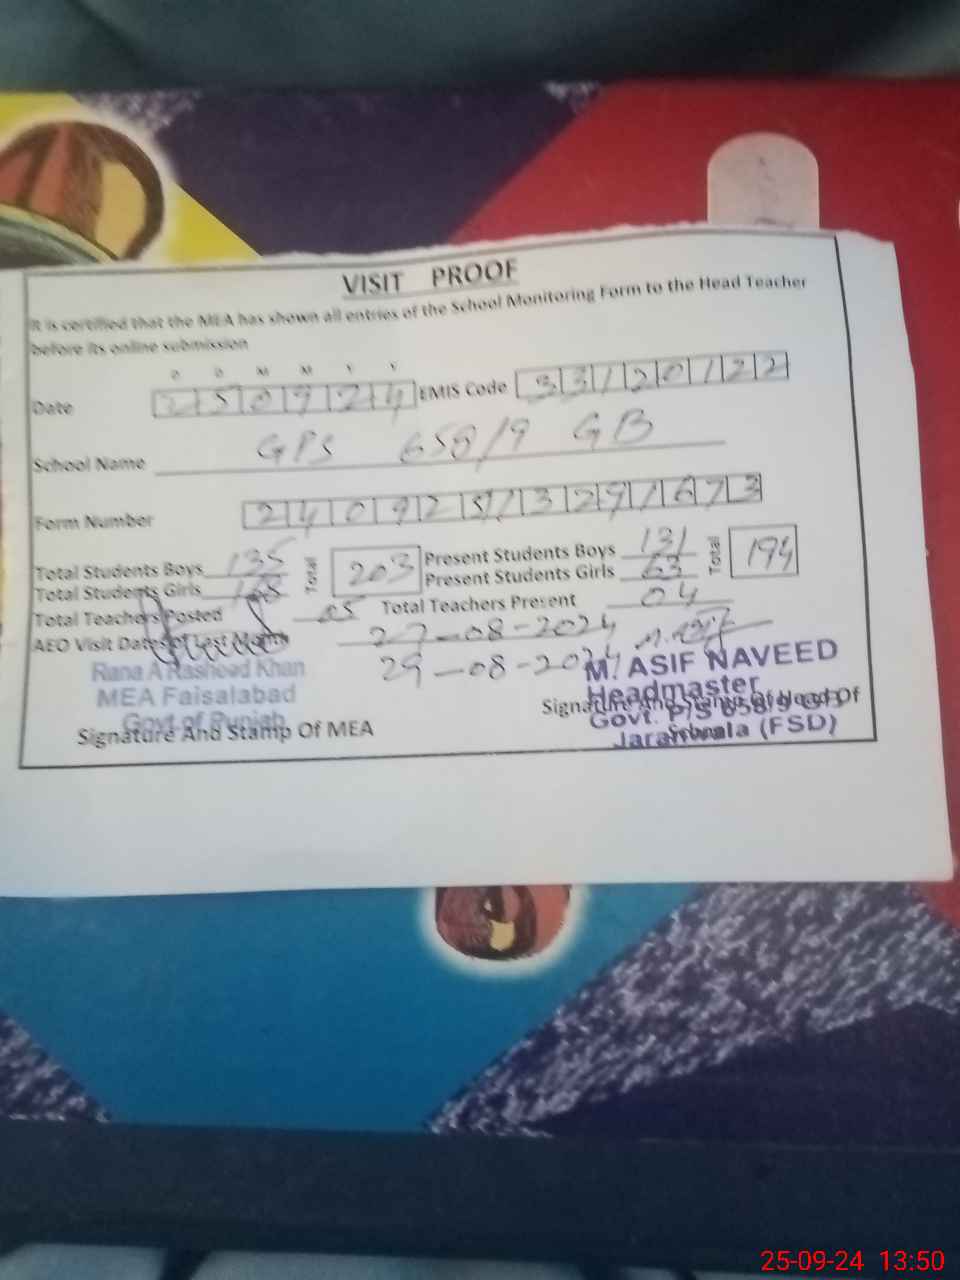 VISIT PROOF
It is certified that the MEA has shown all entries of the School Monitoring Form to the Head Teacher
before its online submission
D D M M Y Y
Date 250924 EMIS Code 33120122
School Name GPS 658/9 GB
Form Number 24092513291673
Total Students Boys 135 Total 203 Present Students Boys 131 Total 194
Total Students Girls Present Students Girls 63
Total Teachers Posted 05 Total Teachers Present 04
AEO Visit Dates of Last Month 27-08-2024
29-08-2024
Rana A Rasheed Khan
MEA Faisalabad
Govt of Punjab
Signature And Stamp Of MEA
M. ASIF NAVEED
Headmaster
Signature And Stamp Of Head Of
School
Govt. P/S 658/9 G/B
Jaranwala (FSD)
25-09-24 13:50